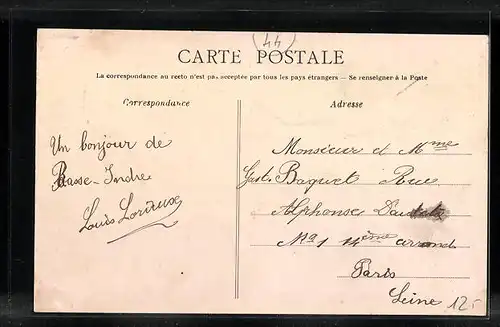 (44)
CARTE POSTALE
La correspondance au recto n'est pas acceptée par tous les pays étrangers — Se renseigner à la Poste
Correspondance
Adresse
Un bonjour de
Basse-Indre
Louis
Monsieur et Mme
Gust. Baquet Rue
Alphonse Daudet
No 1 14ème arrond
Paris
Seine
12.-